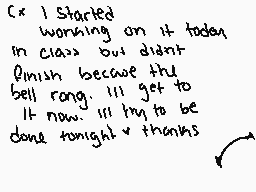 (x I started
working on it today
in class but didnt
finish because the
bell rang. Ill get to
it now. Ill try to be
done tonight thanks